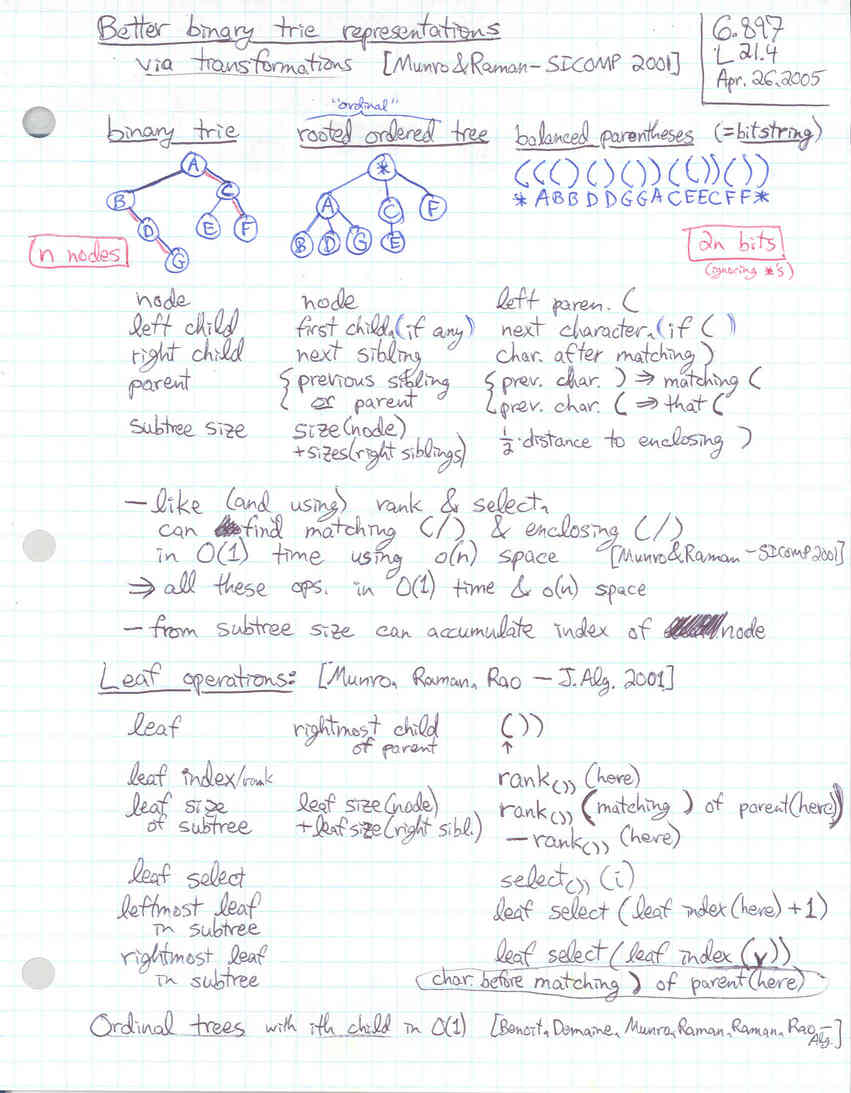 Better binary trie representations
via transformations [Munro&Raman-SICOMP 2001]
6.897
L 21.4
Apr. 26.2005
"ordinal"
binary trie rooted ordered tree balanced parentheses (=bitstring)
((()()())(())())
* A B B D D G G A C E E C F F *
A
B C
D E F
G
*
A C F
B D G E
n nodes
2n bits
(ignoring *'s)
node node left paren. (
left child first child (if any) next character (if ( )
right child next sibling char. after matching )
parent { previous sibling { prev. char. ) ⇒ matching (
or parent prev. char. ( ⇒ that (
subtree size size(node) ½·distance to enclosing )
+sizes(right siblings)
– like (and using) rank & select,
can find matching (/) & enclosing (/)
in O(1) time using o(n) space [Munro&Raman-SICOMP 2001]
⇒ all these ops. in O(1) time & o(n) space
– from subtree size can accumulate index of node
Leaf operations: [Munro, Raman, Rao – J. Alg. 2001]
leaf rightmost child ())
of parent ↑
leaf index/rank rank()) (here)
leaf size leaf size(node) rank()) (matching ) of parent(here))
of subtree +leafsize(right sibl.) – rank()) (here)
leaf select select()) (i)
leftmost leaf leaf select (leaf index(here)+1)
in subtree
rightmost leaf leaf select(leaf index(y))
in subtree char. before matching ) of parent(here)
Ordinal trees with ith child in O(1) [Benoit, Demaine, Munro, Raman, Raman, Rao – Alg.]